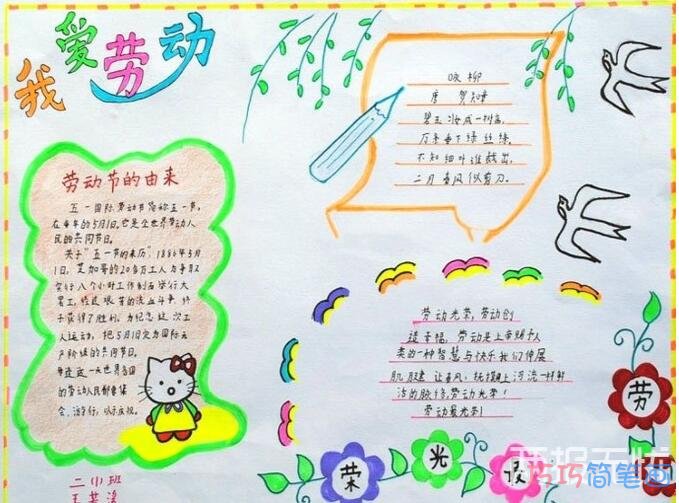 我爱劳动
劳动节的由来
五一国际劳动节简称五一节,
在每年的5月1日,它是全世界劳动人
民的共同节日。
关于"五一节的来历",1886年5月
1日,芝加哥的20多万工人为争取
实行八个小时工作制而举行大
罢工,经过艰苦的流血斗争,终
于获得了胜利。为纪念这次工
人运动,把5月1日定为国际无
产阶级的共同节日。
每逢这一天世界各国
的劳动人民都要集
会,游行,以示庆祝。
二小班
咏柳
唐 贺知章
碧玉妆成一树高,
万条垂下绿丝绦。
不知细叶谁裁出,
二月春风似剪刀。
劳动光荣,劳动创
造幸福,劳动是上帝赐予人
类的一种智慧与快乐我们伸展
肌腱 让春风,抚摸
的脉络,劳动光荣!
劳动最光荣!
劳
荣 光
巧巧简笔画